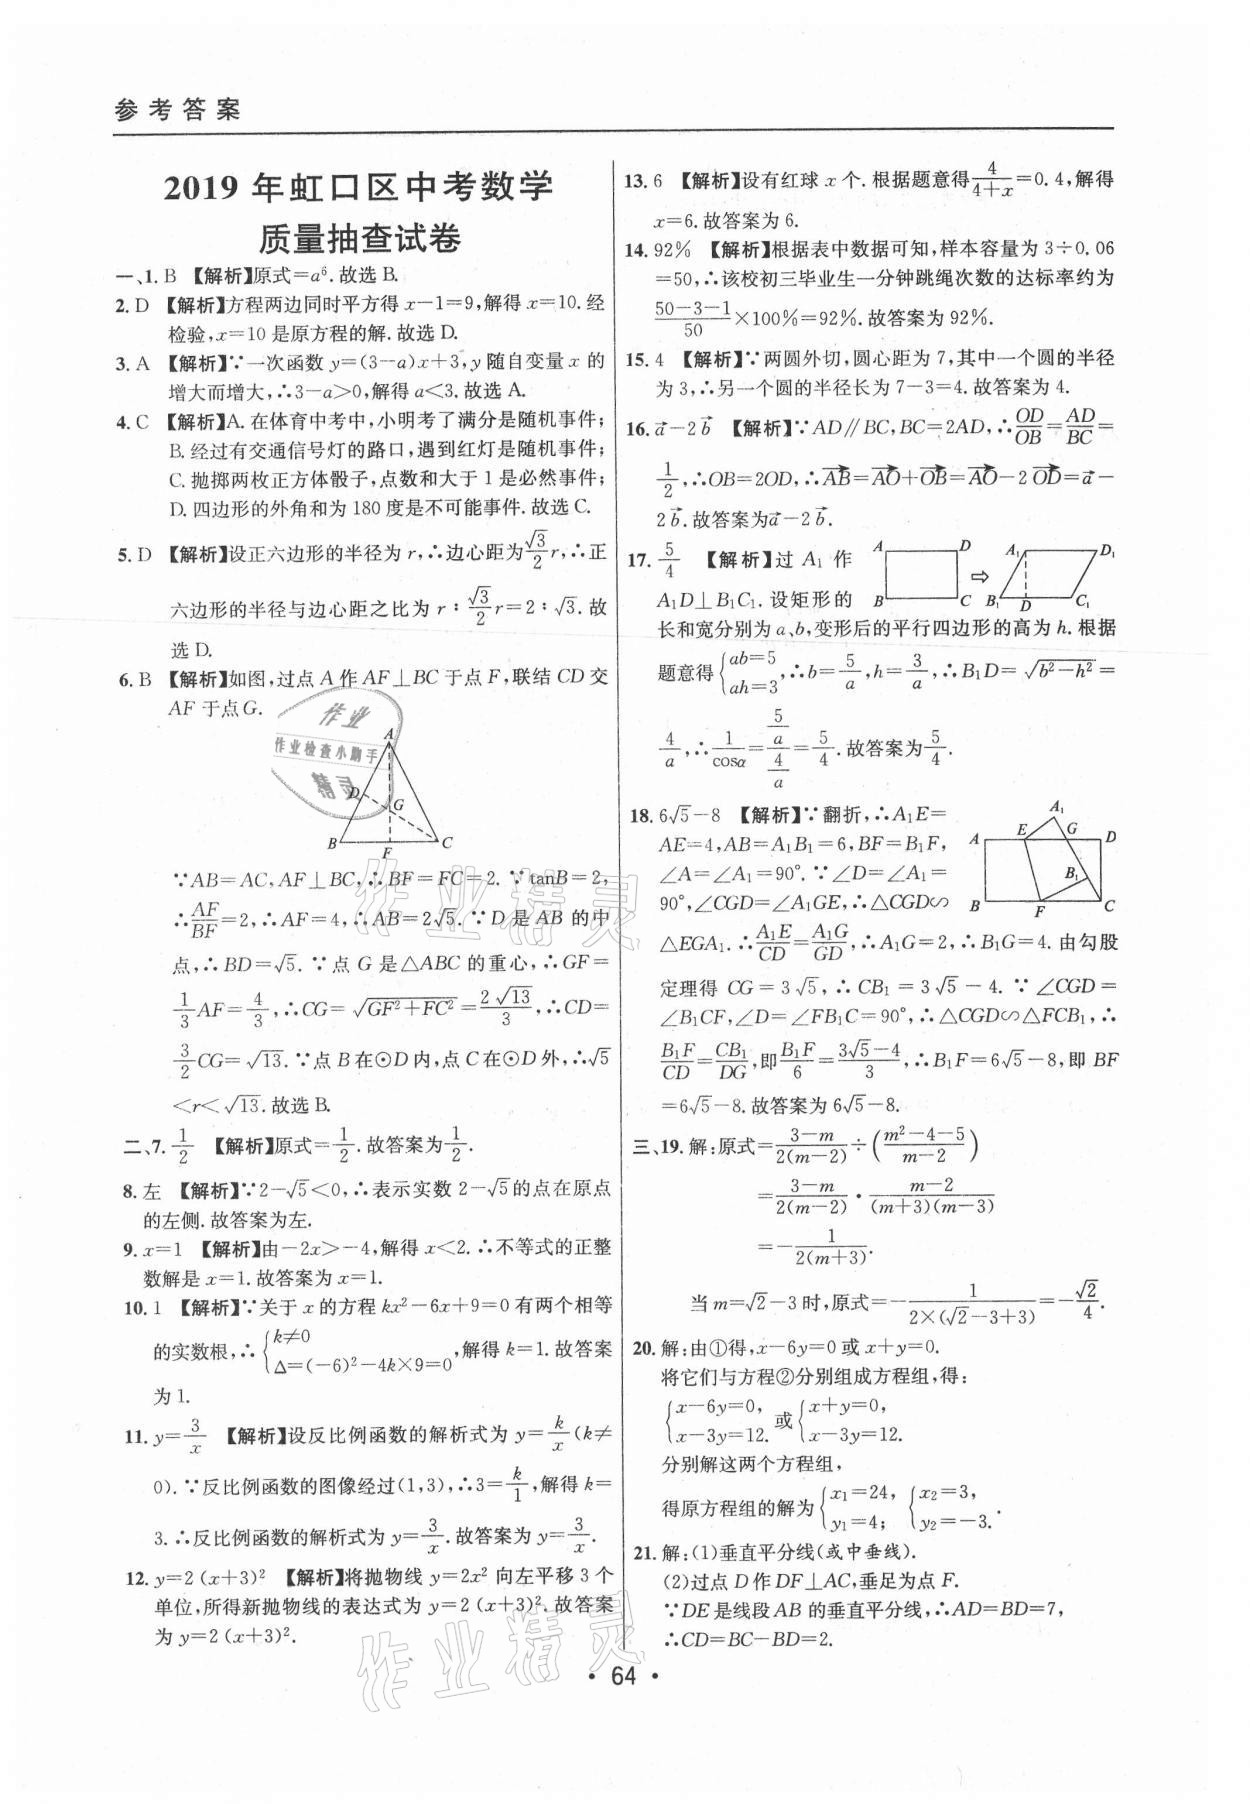 参考答案
2019 年虹口区中考数学
质量抽查试卷
一、1. B 【解析】原式=a⁶. 故选 B.
2. D 【解析】方程两边同时平方得 x-1=9,解得 x=10. 经
检验,x=10 是原方程的解. 故选 D.
3. A 【解析】∵一次函数 y=(3-a)x+3,y 随自变量 x 的
增大而增大,∴3-a>0,解得 a<3. 故选 A.
4. C 【解析】A. 在体育中考中,小明考了满分是随机事件;
B. 经过有交通信号灯的路口,遇到红灯是随机事件;
C. 抛掷两枚正方体骰子,点数和大于 1 是必然事件;
D. 四边形的外角和为 180 度是不可能事件. 故选 C.
5. D 【解析】设正六边形的半径为 r,∴边心距为 √3/2 r,∴正
六边形的半径与边心距之比为 r∶√3/2 r=2∶√3. 故
选 D.
6. B 【解析】如图,过点 A 作 AF⊥BC 于点 F,联结 CD 交
AF 于点 G.
作业
作业检查小助手
精灵
A
D
G
B
F
C
∵AB=AC,AF⊥BC,∴BF=FC=2. ∵tanB=2,
∴AF/BF=2,∴AF=4,∴AB=2√5. ∵D 是 AB 的中
点,∴BD=√5. ∵点 G 是△ABC 的重心,∴GF=
1/3 AF=4/3,∴CG=√(GF²+FC²)=2√13/3,∴CD=
3/2 CG=√13. ∵点 B 在⊙D 内,点 C 在⊙D 外,∴√5
<r<√13. 故选 B.
二、7. 1/2 【解析】原式=1/2. 故答案为 1/2.
8. 左 【解析】∵2-√5<0,∴表示实数 2-√5 的点在原点
的左侧. 故答案为左.
9. x=1 【解析】由-2x>-4,解得 x<2. ∴不等式的正整
数解是 x=1. 故答案为 x=1.
10. 1 【解析】∵关于 x 的方程 kx²-6x+9=0 有两个相等
的实数根,∴{k≠0 Δ=(-6)²-4k×9=0,解得 k=1. 故答案
为 1.
11. y=3/x 【解析】设反比例函数的解析式为 y=k/x (k≠
0). ∵反比例函数的图像经过(1,3),∴3=k/1,解得 k=
3. ∴反比例函数的解析式为 y=3/x. 故答案为 y=3/x.
12. y=2(x+3)² 【解析】将抛物线 y=2x² 向左平移 3 个
单位,所得新抛物线的表达式为 y=2(x+3)². 故答案
为 y=2(x+3)².
13. 6 【解析】设有红球 x 个. 根据题意得 4/(4+x)=0.4,解得
x=6. 故答案为 6.
14. 92% 【解析】根据表中数据可知,样本容量为 3÷0.06
=50,∴该校初三毕业生一分钟跳绳次数的达标率约为
(50-3-1)/50×100%=92%. 故答案为 92%.
15. 4 【解析】∵两圆外切,圆心距为 7,其中一个圆的半径
为 3,∴另一个圆的半径长为 7-3=4. 故答案为 4.
16. a⃗-2b⃗ 【解析】∵AD∥BC,BC=2AD,∴OD/OB=AD/BC=
1/2,∴OB=2OD,∴AB⃗=AO⃗+OB⃗=AO⃗-2OD⃗=a⃗-
2b⃗. 故答案为 a⃗-2b⃗.
17. 5/4 【解析】过 A₁ 作
A₁D⊥B₁C₁. 设矩形的
A D B C ⇨ A₁ D₁ B₁ D C₁
长和宽分别为 a、b,变形后的平行四边形的高为 h. 根据
题意得{ab=5 ah=3,∴b=5/a,h=3/a,∴B₁D=√(b²-h²)=
4/a,∴1/cosα=(5/a)/(4/a)=5/4. 故答案为 5/4.
18. 6√5-8 【解析】∵翻折,∴A₁E=
AE=4,AB=A₁B₁=6,BF=B₁F,
∠A=∠A₁=90°. ∵∠D=∠A₁=
90°,∠CGD=∠A₁GE,∴△CGD∽
A₁ A E G D B₁ B F C
△EGA₁. ∴A₁E/CD=A₁G/GD,∴A₁G=2,∴B₁G=4. 由勾股
定理得 CG=3√5,∴CB₁=3√5-4. ∵∠CGD=
∠B₁CF,∠D=∠FB₁C=90°,∴△CGD∽△FCB₁,∴
B₁F/CD=CB₁/DG,即 B₁F/6=(3√5-4)/3,∴B₁F=6√5-8,即 BF
=6√5-8. 故答案为 6√5-8.
三、19. 解:原式=(3-m)/(2(m-2))÷((m²-4-5)/(m-2))
=(3-m)/(2(m-2))·(m-2)/((m+3)(m-3))
=-1/(2(m+3)).
当 m=√2-3 时,原式=-1/(2×(√2-3+3))=-√2/4.
20. 解:由①得,x-6y=0 或 x+y=0.
将它们与方程②分别组成方程组,得:
{x-6y=0, x-3y=12. 或{x+y=0, x-3y=12.
分别解这两个方程组,
得原方程组的解为{x₁=24, y₁=4; {x₂=3, y₂=-3.
21. 解:(1)垂直平分线(或中垂线).
(2)过点 D 作 DF⊥AC,垂足为点 F.
∵DE 是线段 AB 的垂直平分线,∴AD=BD=7,
∴CD=BC-BD=2.
作业精灵
作业精灵
• 64 •